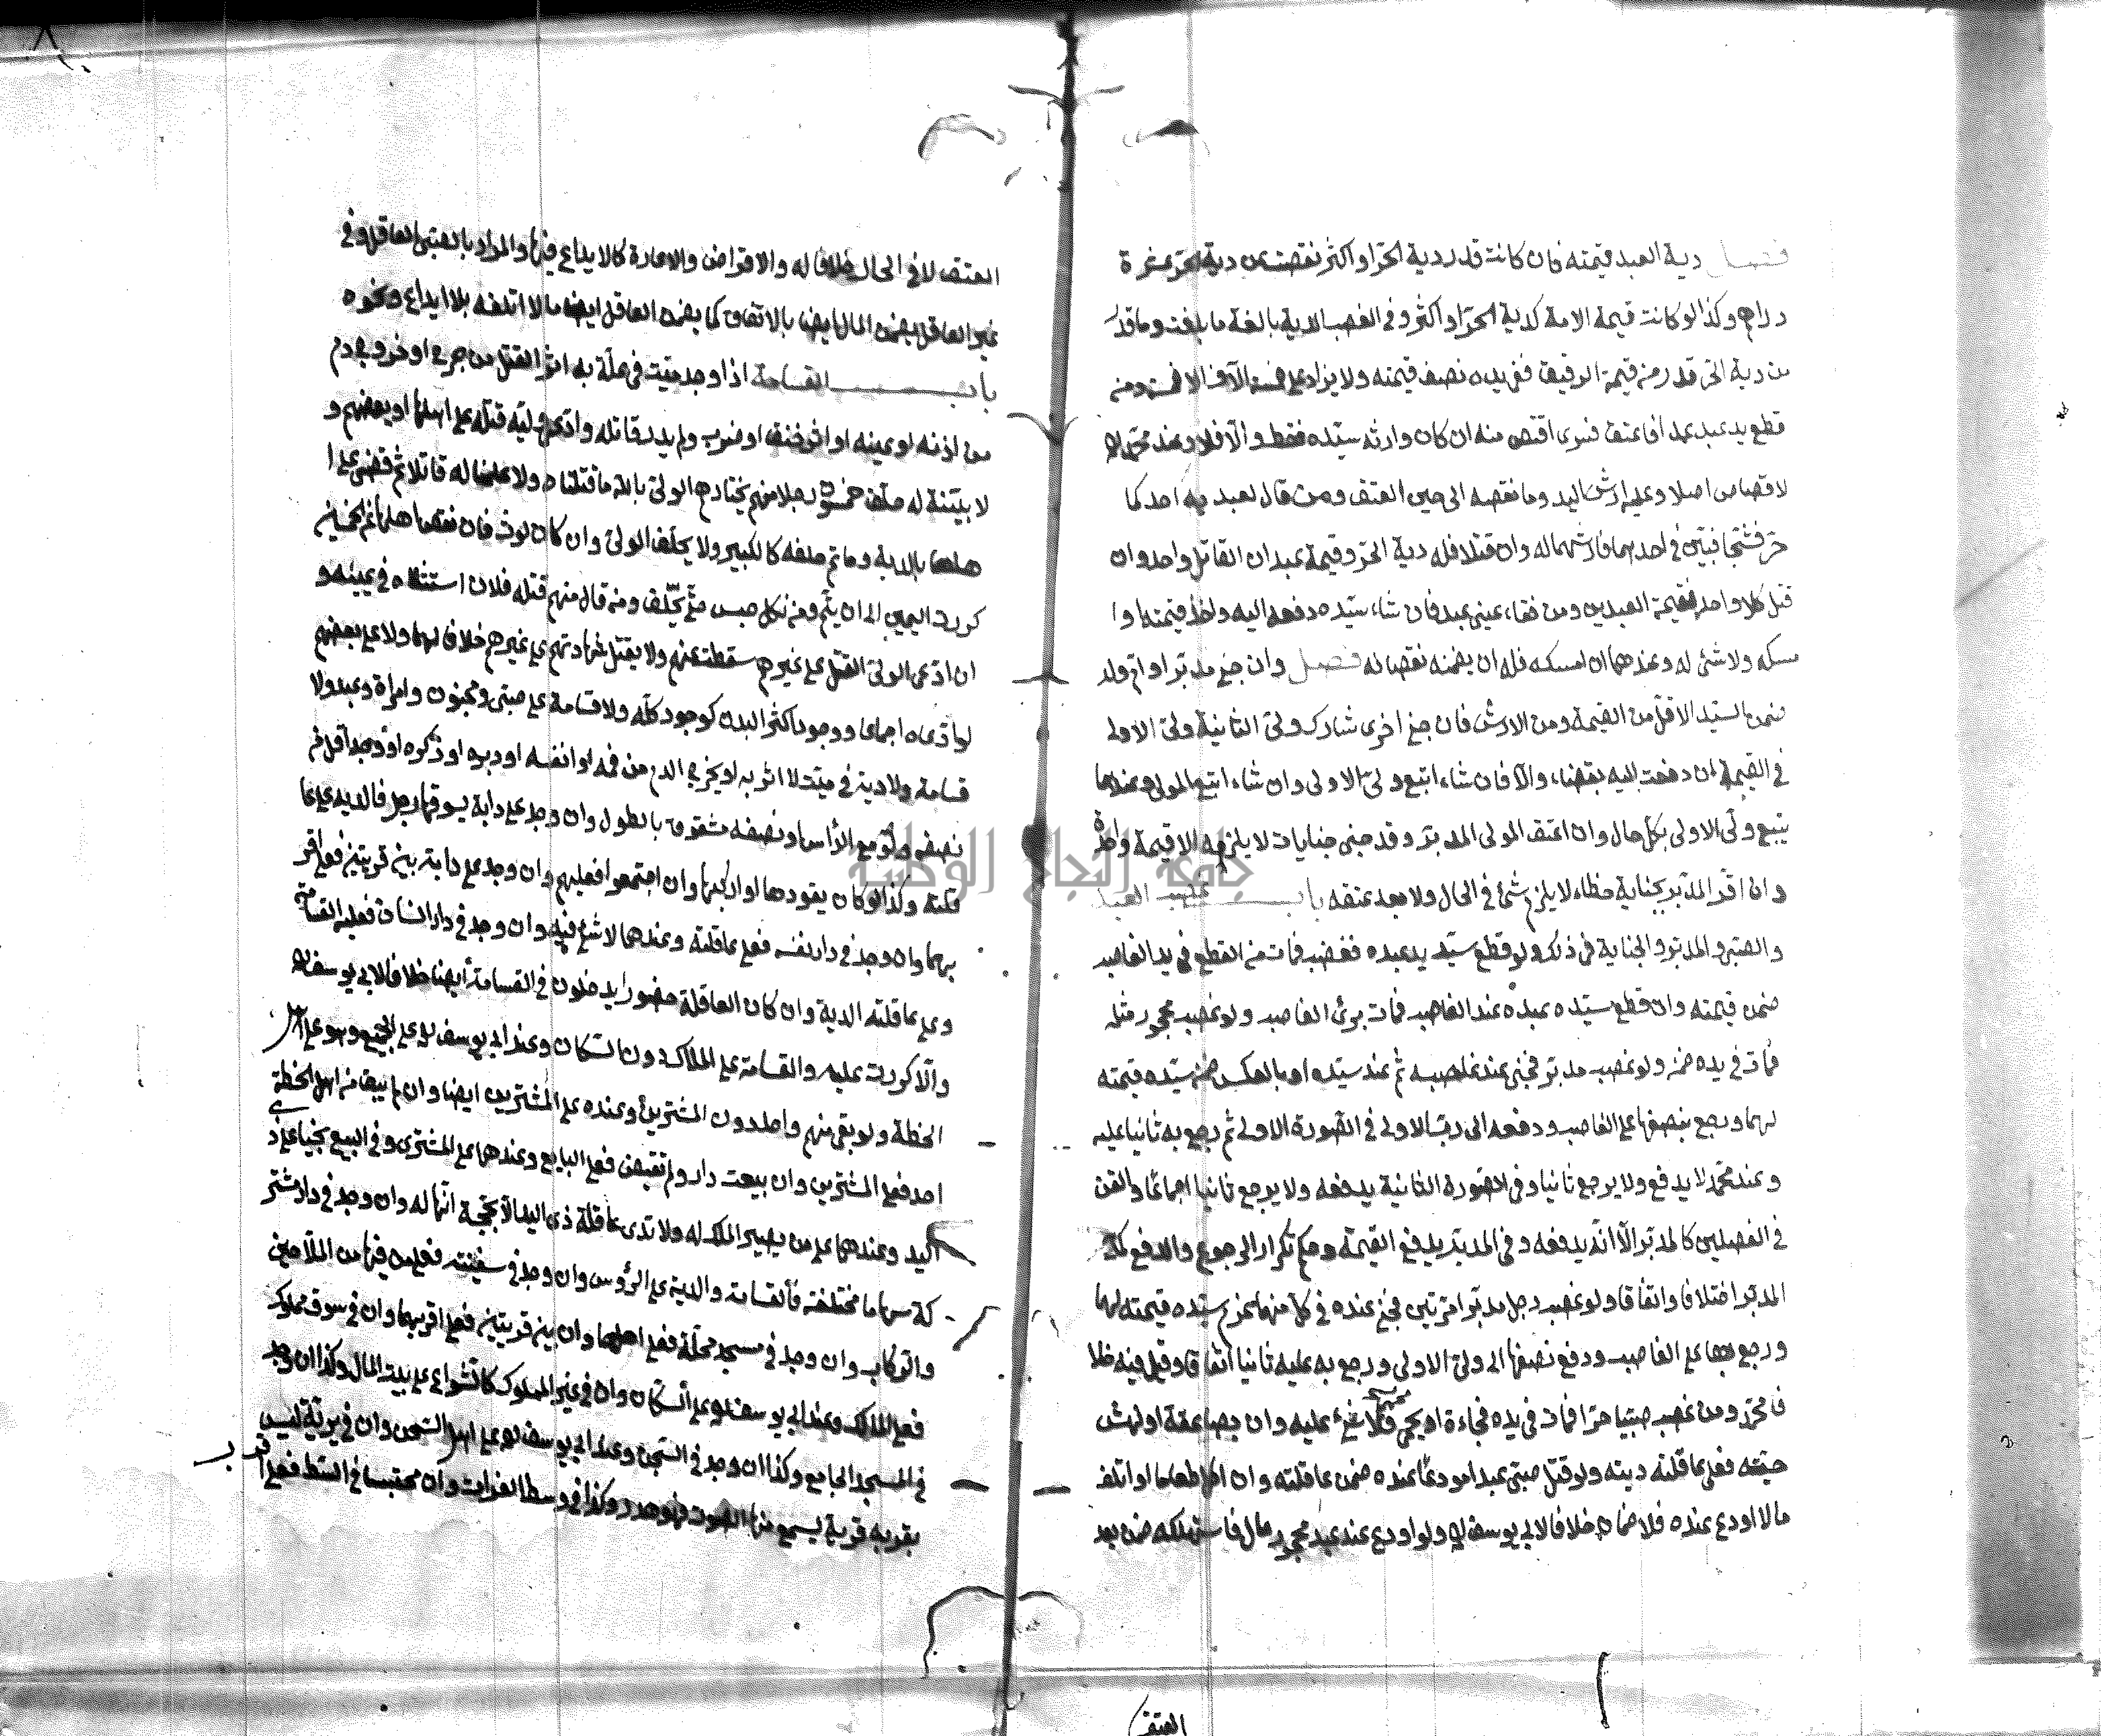 فصل دية العبد قيمته فان كانت قدر دية الحر او اكثر نقصت عن دية الحر عشرة
دراهم وكذا لو كانت قيمة الامة كدية الحرة او اكثر وفى الغصب الدية بالغة ما بلغت وما قدر
من دية الحر قدر منه قيمة الرقيق ففى يده نصف قيمته ولا يزاد على خمسة الآف الا خمسة ومن
قطع يد عبد عمدا فاعتق فسرى اقتص منه ان كان وارثه سيده فقط والا فلا وعند محمد
لا قصاص اصلا وعليه ارش اليد وما نقصه الى حين العتق ومن قال لعبديه احدكما
حر فشجا فبين فى احدهما فارشهما له وان قتلا فله دية الحر وقيمة عبد ان القاتل واحد وان
قتل كلا واحد فقيمة العبدين ومن فقاء عينى عبد فان شاء سيده دفعه اليه واخذ قيمته او ا
مسكه ولا شئ له وعندهما ان امسكه فله ان يضمنه نقصانه فصل وان جنى مدبر او ام ولد
ضمن السيد الاقل من القيمة ومن الارش فان جنى اخرى شارك ولى الثانية ولى الاولى
فى القيمة ان دفعت اليه بقضاء والا فان شاء اتبع ولى الاولى وان شاء اتبع المولى وعندهما
يتبع ولى الاولى بكل حال وان اعتق المولى المدبر وقد جنى جنايات لا يلزمه الا قيمة واحدة
وان اقر المدبر بجناية خطاء لا يلزم شئ فى الحال ولا بعد عتقه باب غصب العبد
والصبى والمدبر والجناية فى ذلك ولو قطع سيد يد عبده فغصب فمات من القطع فى يد الغاصب
ضمن قيمته وان قطع سيده عبده عند الغاصب فمات برئ الغاصب ولو غصب محجور مثله
فمات فى يده ضمن ولو غصب مدبر فجنى عند غاصبه ثم عند سيده او بالعكس ضمن سيده قيمته
لهما ورجع بنصفها على الغاصب ودفعه الى رب الاولى فى الصورة الاولى ثم رجع به ثانيا عليه
وعند محمد لا يدفع ولا يرجع ثانيا وفى الصورة الثانية يدفعه ولا يرجع ثانيا اجماعا والقن
فى الفصلين كالمدبر الا انه يدفعه وفى المدبر يدفع القيمة وحكم تكرار الرجوع والدفع كما
المدبر اختلافا واتفاقا ولو غصب رجل مدبرا مرتين فجنى عنده فى كل منهما غرم سيده قيمته لهما
ورجع بها على الغاصب ودفع نصفها الى ولى الاولى ورجع به عليه ثانيا اتفاقا وقيل فيه خلا
ف محمد ومن غصب صبيا حرا فمات فى يده فجاءة او بحمى فلا شئ عليه وان بصاعقة او نهش
حية فعلى عاقلته ديته ولو قتل صبى عبدا مودعا عنده ضمن عاقلته وان اكل طعاما او اتلف
مالا اودع عنده فلا ضمان خلافا لابى يوسف ولو اودع عند عبد محجور مال فاستهلكه ضمن بعد
العتق
العتق لا فى الحال خلافا له والاقراض والاعارة كالايداع فيها والمراد بالصبى العاقل وفى
غير العاقل يضمن المال ايضا بالاتفاق كما يضمن العاقل ايضا مالا اتلفه بلا ايداع ونحوه
باب القسامة اذا وجد ميت فى محلة به اثر القتل من جرح او خروج دم
من اذنه او عينه او اثر خنق او ضرب ولم يدر قاتله وادعى وليه قتله على اهلها او بعضهم و
لا بينة له حلف خمسون رجلا منهم يختارهم الولى بالله ما قتلناه ولا علمنا له قاتلا ثم قضى على ا
هلها بالدية وما تم حلفه كالكبير ولا يحلف الولى وان كان لوث فان نقص اهلها عن الخمسين
كررت اليمين الى ان يتم ومن نكل حبس حتى يحلف ومن قال منهم قتله فلان استثناه فى يمينه و
ان ادعى الولى القتل على غيرهم سقطت عنهم ولا يقبل شهادتهم على غيرهم خلافا لهما ولا على بعضهم
لو ادعاه اجماعا ووجود اكثر البدن كوجود كله ولا قسامة على صبى ومجنون وامراة وعبد ولا
قسامة ولا دية فى ميت لا اثر به او يخرج الدم من فمه او انفه او دبره او ذكره او وجد اقل من
نصفه ولو مع الرأس او نصفه مشقوق بالطول وان وجد على دابة يسوقها رجل فالدية على عا
قلته وكذا لو كان يقودها او راكبها وان اجتمعوا فعليهم وان وجد على دابة بين قريتين فعلى اقر
بهما وان وجد فى دار نفسه فعلى عاقلته وعندهما لا شئ فيه وان وجد فى دار انسان فعليه القسامة
وعلى عاقلته الدية وان كان العاقلة حضورا يدخلون فى القسامة ايضا خلافا لابى يوسف
والا كررت عليه والقسامة على الملاك دون السكان وعند ابى يوسف على الجميع وهو على اهل
الخطة ولو بقى منهم واحد دون المشترين وعنده على المشترين ايضا وان لم يبق من اهل الخطة
احد فعلى المشترين وان بيعت دار ولم تقبض فعلى البايع وعندهما على المشترى وفى البيع بخيار على ذى
اليد وعندهما على من يصير الملك له ولا تدى عاقلة ذى اليد الا بحجة انها له وان وجد فى دار مشتر
كة سهاما مختلفة فالقسامة والدية على الرؤس وان وجد فى سفينة فعلى من فيها من الملاحين
والركاب وان وجد فى مسجد محلة فعلى اهلها وان بين قريتين فعلى اقربهما وان فى سوق مملوك
فعلى المالك وعند ابى يوسف على السكان وان فى غير المملوك كالشوارع على بيت المال وكذا ان وجد
فى المسجد الجامع وكذا ان وجد فى السجن وعند ابى يوسف على اهل السجن وان فى برية ليس
بقربه قرية يسمع منها الصوت فهو هدر وكذا فى وسط الفرات وان محتبسا فى الشط فعلى اقرب
جامعة النجاح الوطنية